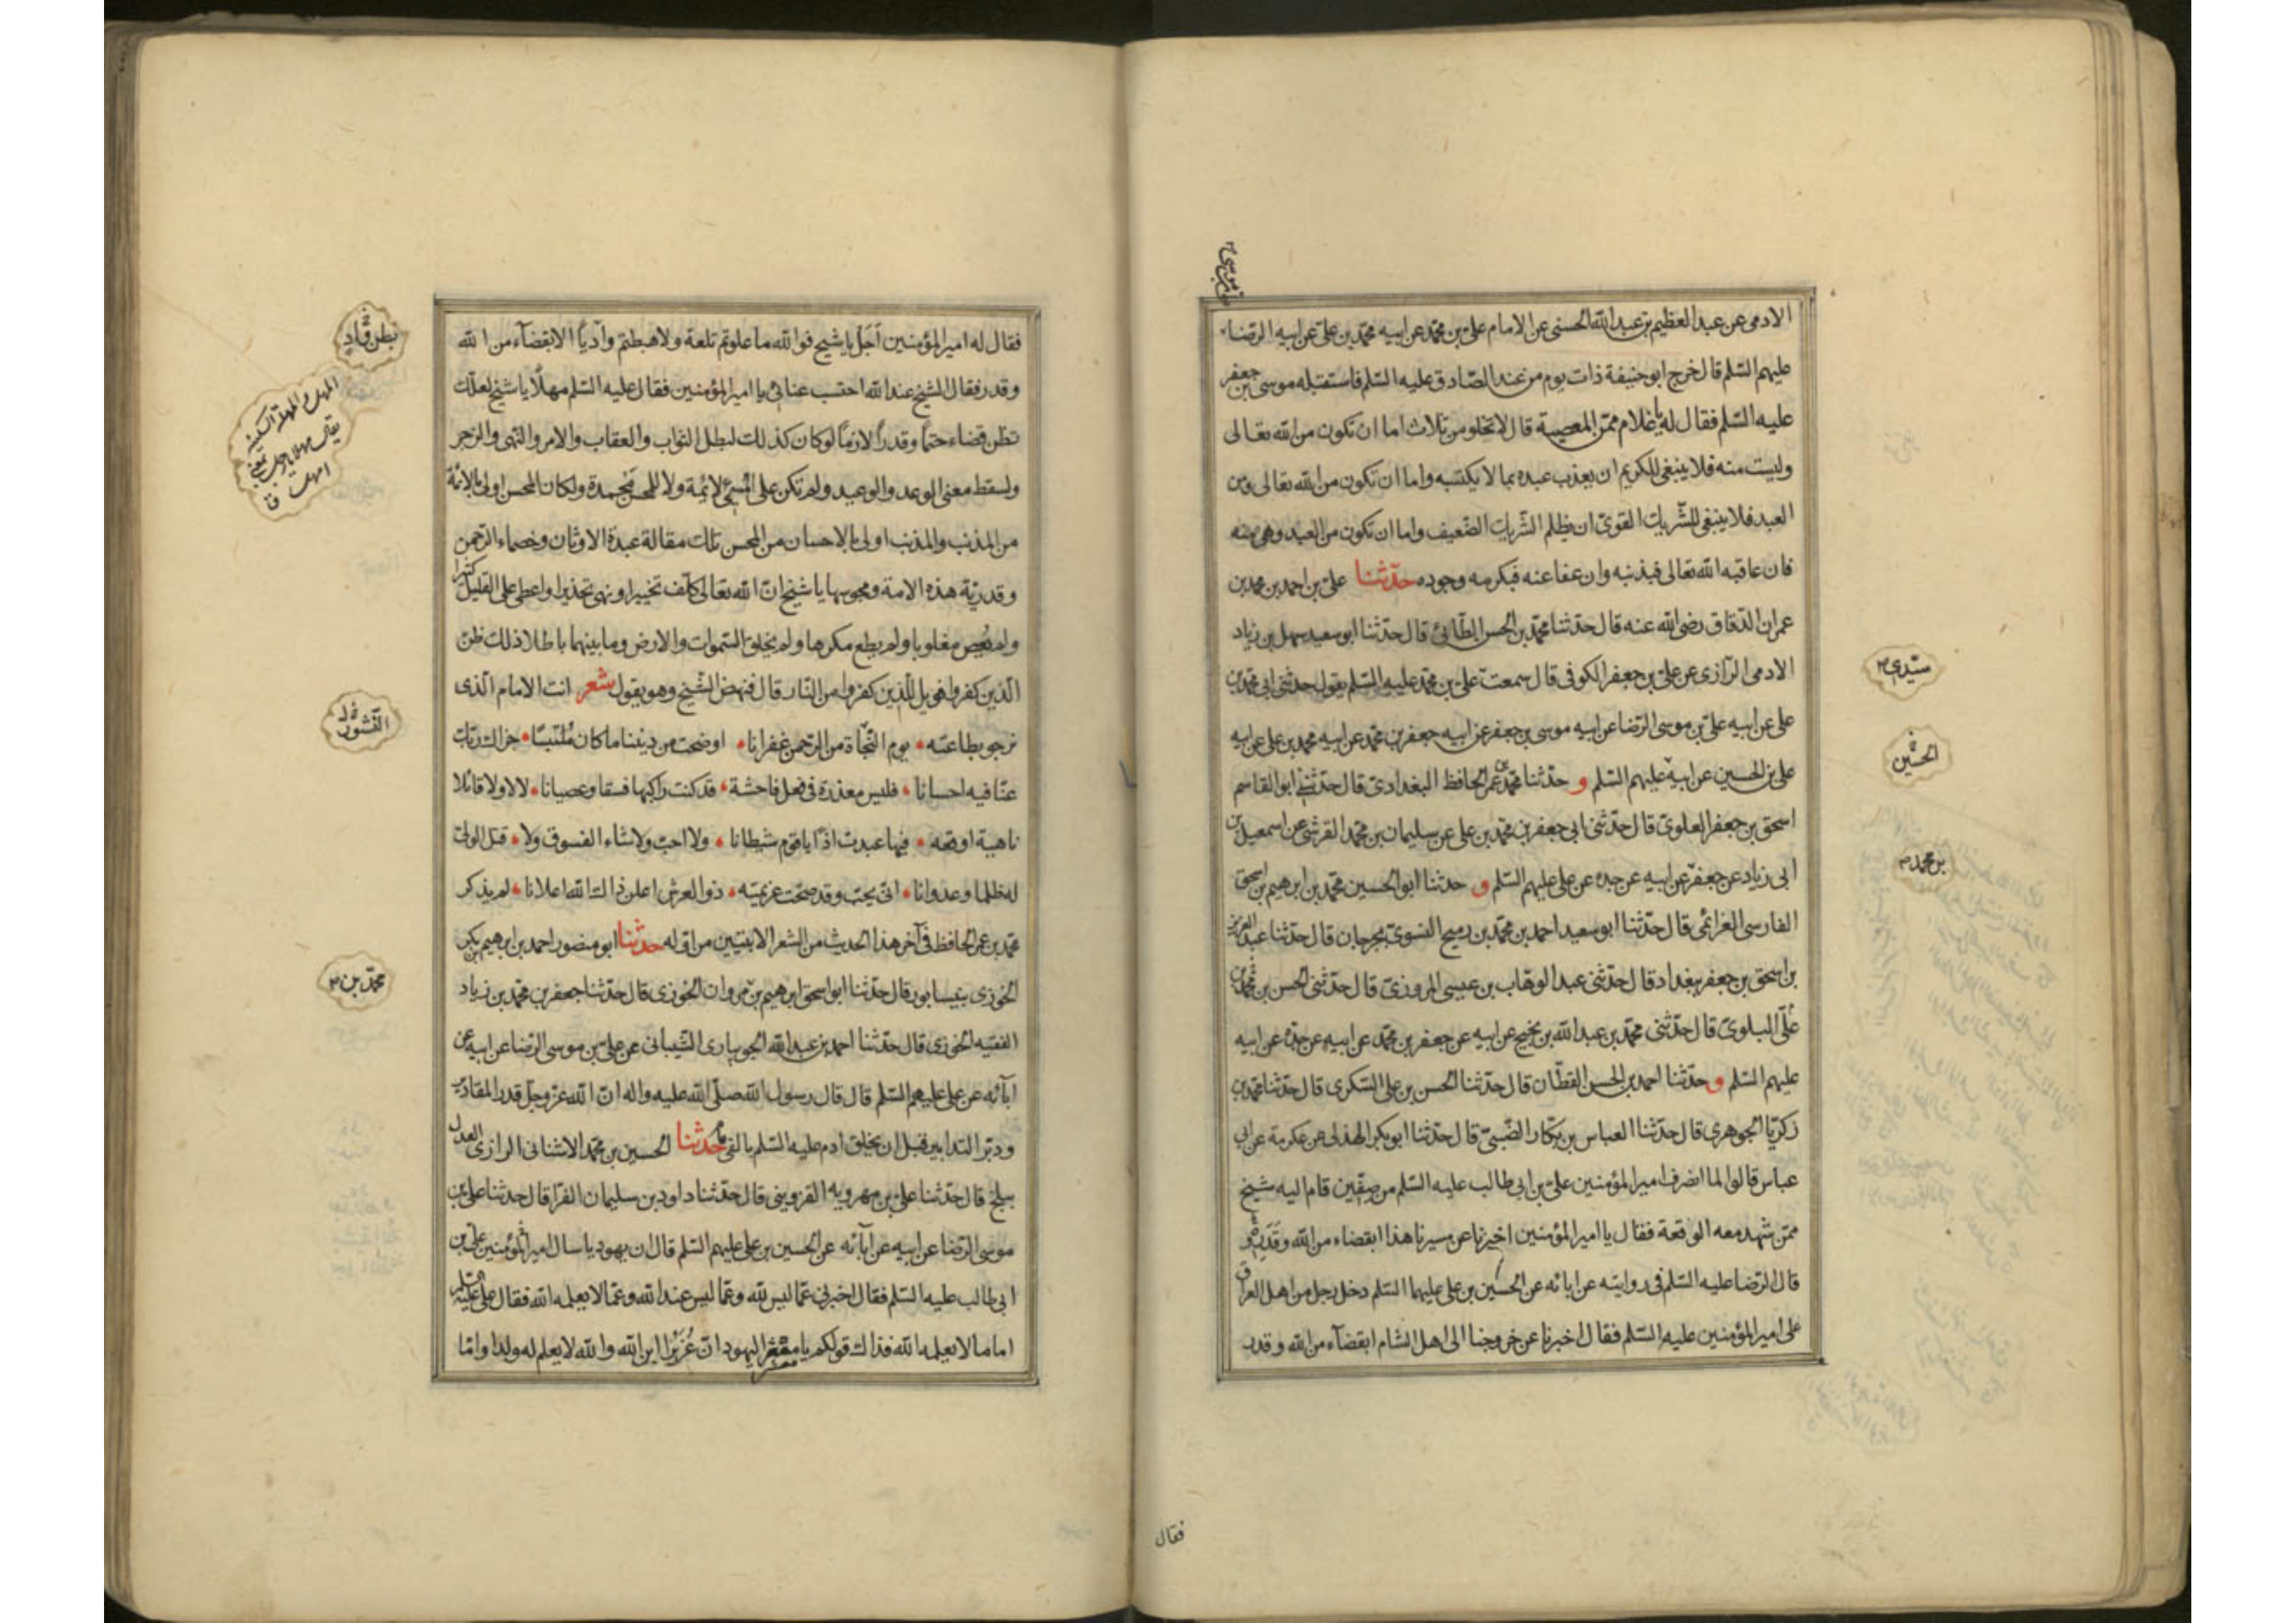 الادمى عن عبد العظيم بن عبد الله الحسنى عن الامام على بن محمد عن ابيه محمد بن على عن ابيه الرضا
عليهم السلم قال خرج ابو حنيفة ذات يوم من عند الصادق عليه السلم فاستقبله موسى بن جعفر
عليه السلم فقال له يا غلام ممن المعصية قال لا تخلو من ثلاث اما ان تكون من الله تعالى
وليست منه فلا ينبغى للكريم ان يعذب عبده بما لا يكتسبه واما ان تكون من الله تعالى ومن
العبد فلا ينبغى للشريك القوى ان يظلم الشريك الضعيف واما ان تكون من العبد وهى منه
فان عاقبه الله تعالى فبذنبه وان عفا عنه فبكرمه وجوده حدثنا على بن احمد بن محمد بن
عمران الدقاق رضى الله عنه قال حدثنا محمد بن الحسن الطائى قال حدثنا ابو سعيد سهل بن زياد
الادمى الرازى عن على بن جعفر الكوفى قال سمعت على بن محمد عليه السلم يقول حدثنى ابى محمد بن
على عن ابيه على بن موسى الرضا عن ابيه موسى بن جعفر عن ابيه جعفر بن محمد عن ابيه محمد بن على عن ابيه
على بن الحسين عن ابيه عليهم السلم و حدثنا محمد بن عمر الحافظ البغدادى قال حدثنى ابو القاسم
اسحق بن جعفر العلوى قال حدثنى ابى جعفر بن محمد بن على عن سليمان بن محمد القرشى عن اسمعيل بن
ابى زياد عن جعفر عن ابيه عن جده عن على عليهم السلم و حدثنا ابو الحسين محمد بن ابرهيم بن اسحق
الفارسى الغرائمى قال حدثنا ابو سعيد احمد بن محمد بن رميح النسوى بجرجان قال حدثنا عبد العزيز
بن اسحق بن جعفر ببغداد قال حدثنى عبد الوهاب بن عيسى المروزى قال حدثنى الحسن بن محمد بن
على البلوى قال حدثنى محمد بن عبد الله بن نجيح عن ابيه عن جعفر بن محمد عن ابيه عن جده عن ابيه
عليهم السلم و حدثنا احمد بن الحسن القطان قال حدثنا الحسن بن على السكرى قال حدثنا محمد بن
زكريا الجوهرى قال حدثنا العباس بن بكار الضبى قال حدثنا ابو بكر الهذلى عن عكرمة عن ابن
عباس قالوا لما انصرف امير المؤمنين على بن ابى طالب عليه السلم من صفين قام اليه شيخ
ممن شهد معه الوقعة فقال يا امير المؤمنين اخبرنا عن مسيرنا هذا ابقضاء من الله وقدر
قال الرضا عليه السلم فى روايته عن ابائه عن الحسين بن على عليهما السلم دخل رجل من اهل العراق
على امير المؤمنين عليه السلم فقال اخبرنا عن خروجنا الى اهل الشام ابقضآء من الله وقدر
سيدى
الحسين
بن محمد
فقال
فقال له امير المؤمنين اجل يا شيخ فوالله ما علوتم تلعة ولا هبطتم وآدياً الا بقضآء من الله
وقدر فقال الشيخ عند الله احتسب عنائى يا امير المؤمنين فقال عليه السلم مهلاً يا شيخ لعلك
تظن قضاء حتماً وقدراً لازماً لو كان كذلك لبطل الثواب والعقاب والامر والنهى والزجر
ولسقط معنى الوعد والوعيد ولم تكن على المسئ لائمة ولا للمحسن محمدة ولكان المحسن اولى بالائمة
من المذنب والمذنب اولى بالاحسان من المحسن تلك مقالة عبدة الاوثان وخصماء الرحمن
وقدرية هذه الامة ومجوسها يا شيخ ان الله تعالى كلف تخييرا ونهى تحذيرا واعطى على القليل كثيرا
ولم يعص مغلوبا ولم يطع مكرها ولم يخلق السموات والارض وما بينهما باطلا ذلك ظن
الذين كفروا فويل للذين كفروا من النار قال فنهض الشيخ وهو يقول شعر انت الامام الذى
نرجو بطاعته • يوم النجاة من الرحمن غفرانا • اوضحت من ديننا ما كان ملتبسا • جزاك ربك
عنا فيه احسانا • فليس معذرة فى فعل فاحشة • قد كنت راكبها فسقا وعصيانا • لا لا ولا قائلا
ناهيه اوقعه • فيها عبدت اذًا يا قوم شيطانا • ولا احب ولا شاء الفسوق ولا • قتل الولى
له ظلما وعدوانا • انى يحب وقد صحت عزيمته • ذو العرش اعلن ذاك الله اعلانا • لم يذكر
محمد بن عمر الحافظ فى آخر هذا الحديث من الشعر الا بيتين من اوله حدثنا ابو منصور احمد بن ابرهيم بن بكر
الخوزى بنيسابور قال حدثنا ابو اسحق ابرهيم بن مروان الخوزى قال حدثنا جعفر بن محمد بن زياد
الفقيه الخوزى قال حدثنا احمد بن عبد الله الجويبارى الشيبانى عن على بن موسى الرضا عن ابيه عن
ابآئه عن على عليهم السلم قال قال رسول الله صلى الله عليه واله ان الله عز وجل قدر المقادير
ودبر التدابير قبل ان يخلق ادم عليه السلم بالفى عام حدثنا الحسين بن محمد الاشنانى الرازى العدل
ببلخ قال حدثنا على بن مهرويه القزوينى قال حدثنا داود بن سليمان الفرا قال حدثنا على بن
موسى الرضا عن ابيه عن ابآئه عن الحسين بن على عليهم السلم قال ان يهوديا سال امير المؤمنين على بن
ابى طالب عليه السلم فقال اخبرنى عما ليس لله وعما ليس عند الله وعما لا يعلمه الله فقال على عليه السلم
اما ما لا يعلمه الله فذاك قولكم يا معشر اليهود ان عُزَيراً ابن الله والله لا يعلم له ولدا واما
بطن واد
المهل والمهلة السكينة
يقال مهلا يا رجل
امهل ق
محمد بن